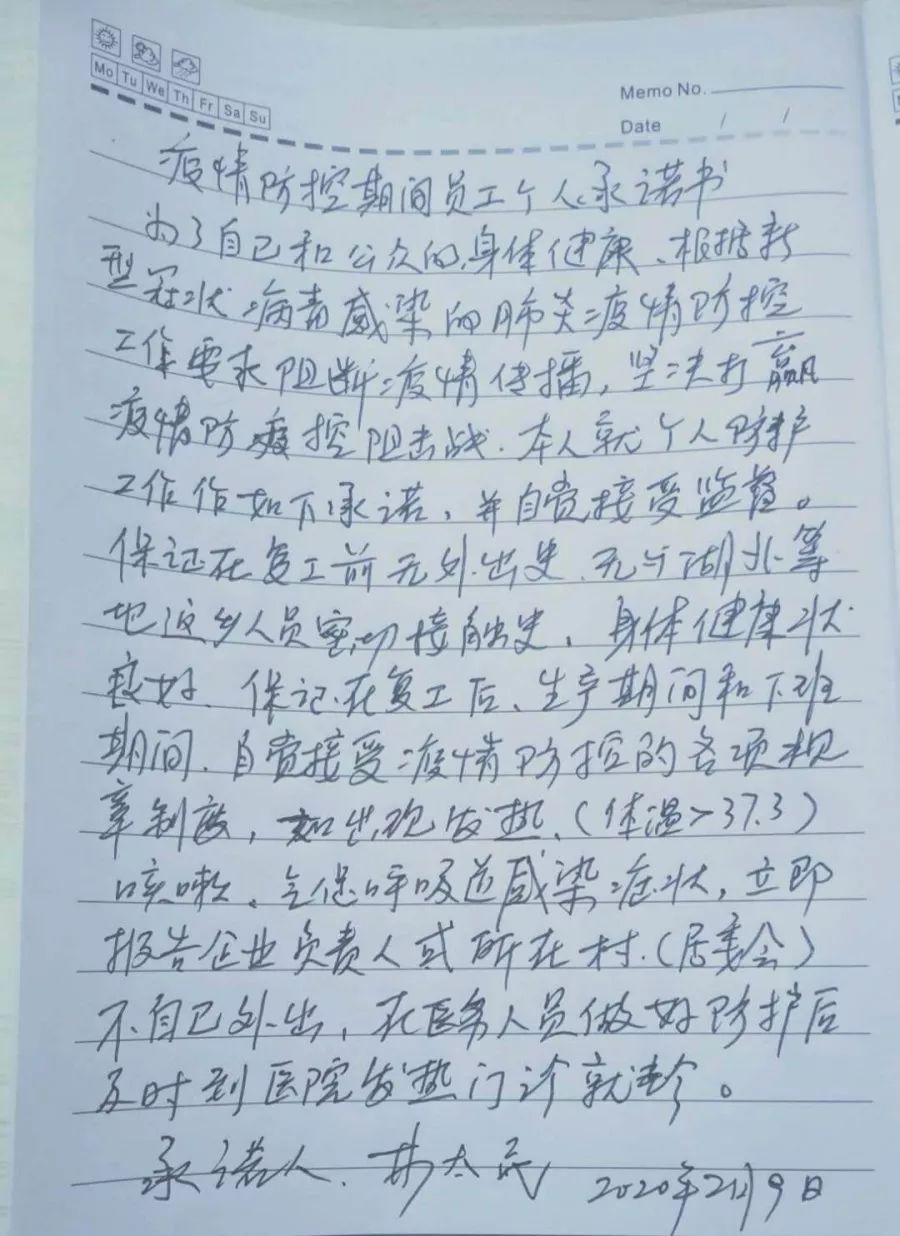 Mo Tu We Th Fr Sa Su
Memo No.
Date / /
疫情防控期间员工个人承诺书
为了自己和公众的身体健康、根据新
型冠状病毒感染的肺炎疫情防控
工作要求阻断疫情传播，坚决打赢
疫情防控阻击战．本人就个人防护
工作作如下承诺，并自觉接受监督。
保证在复工前无外出史．无与湖北等
地返乡人员密切接触史，身体健康状
良好．保证在复工后、生产期间和下班
期间．自觉接受疫情防控的各项规
章制度，如出现发热、（体温>37.3）
咳嗽、等呼吸道感染症状，立即
报告企业负责人或所在村．（居委会）
不自己外出，在医务人员做好防护后
及时到医院发热门诊就诊。
承诺人．太民 2020年2月9日